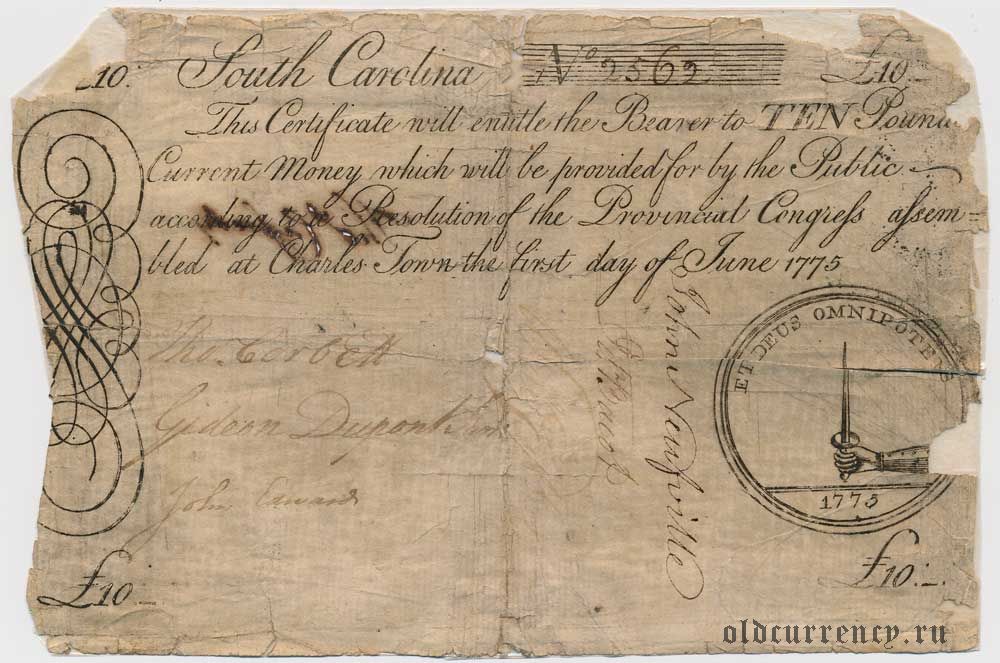 £10. South Carolina No 2569 £10
This Certificate will entitle the Bearer to TEN Pounds
Current Money which will be provided for by the Public
according to a Resolution of the Provincial Congress assem=
bled at Charles Town the first day of June 1775
ET DEUS OMNIPOTENS
Tho. Corbett
Gideon Dupont Jun
John Edwards
John Neufville
1775
£10. £10.
oldcurrency.ru